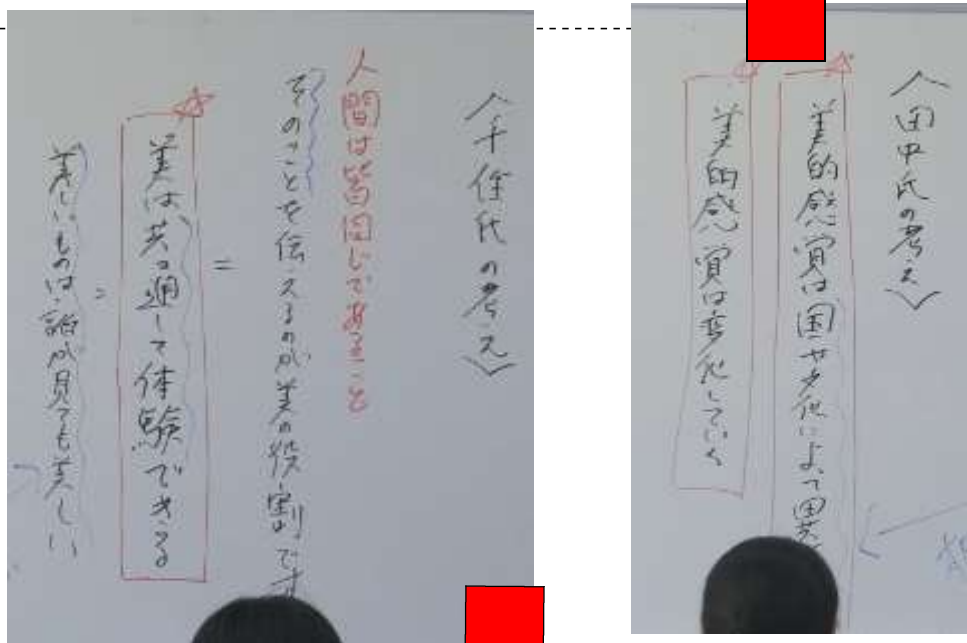 〈田中氏の考え〉
美的感覚は国や文化によって異
美的感覚は変化していく
〈千住氏の考え〉
人間は皆同じであること
そのことを伝えるのが美の役割です
=
美は、共通して体験できる
=
美しいものは、誰が見ても美しい